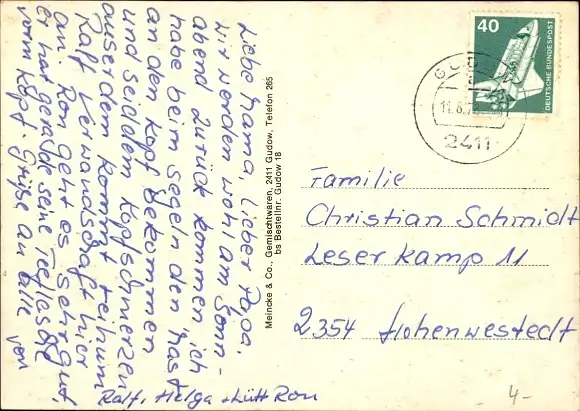 Liebe Mama, Lieber Papa.
Wir werden wohl am Sonn-
abend zurück kommen, ich
habe beim segeln den Mast
an den Kopf bekommen
und seitdem Kopfschmerzen
ausserdem kommt
Ralf Verwandschaft hier
an. Ron geht es sehr gut,
er hat gerade seine
vorm Kopf. Grüße an alle von
Ralf, Helga + Lütt Ron
Meincke & Co., Gemischtwaren, 2411 Gudow, Telefon 265
bs Bestellnr. Gudow 18
40
DEUTSCHE BUNDESPOST
2411
Familie
Christian Schmidt
Leserkamp 11
2354 Hohenwestedt
4-